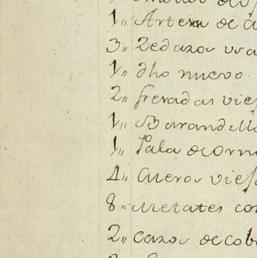 1,, Artesa de a
3,, Zedazos usa
1,, dho nuevo
2,, frevadas viej
1,, Barandilla
1,, Pala de Orno
4,, Cueros viejo
8,, Metates con
2,, Cazos de cob